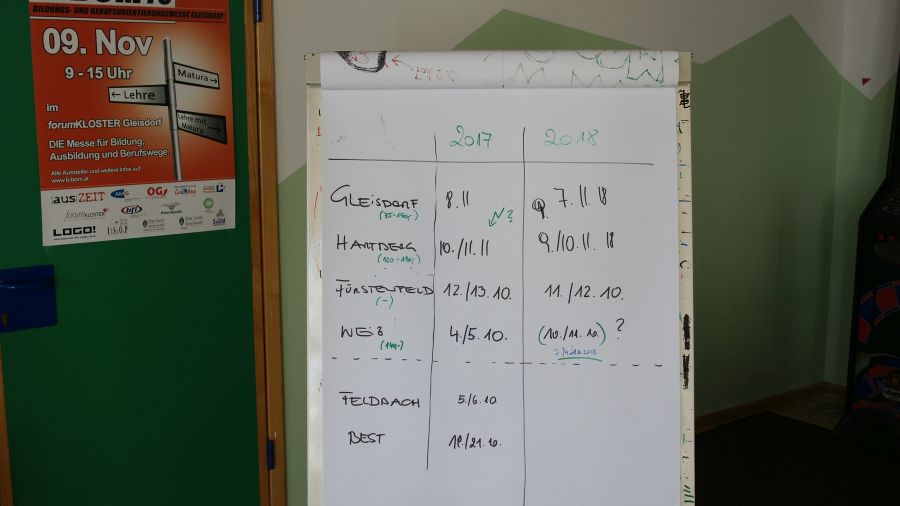 BILDUNGS- UND BERUFSORIENTIERUNGSMESSE GLEISDORF
09. Nov
9 - 15 Uhr
Matura →
← Lehre
Lehre mit
Matura
im
forumKLOSTER Gleisdorf
DIE Messe für Bildung,
Ausbildung und Berufswege.
Alle Aussteller und weitere Infos auf
www.b-bom.at
ausZEIT AMS
forumKLOSTER bfi
LOGO!
2017 2018
GLEISDORF 8.11 7.11.18
?
HARTBERG 10./11.11 9./10.11.18
FÜRSTENFELD 12./13.10. 11./12.10.
(-)
WEIZ 4./5.10. (10./11.10.) ?
FELDBACH 5./6.10
BEST